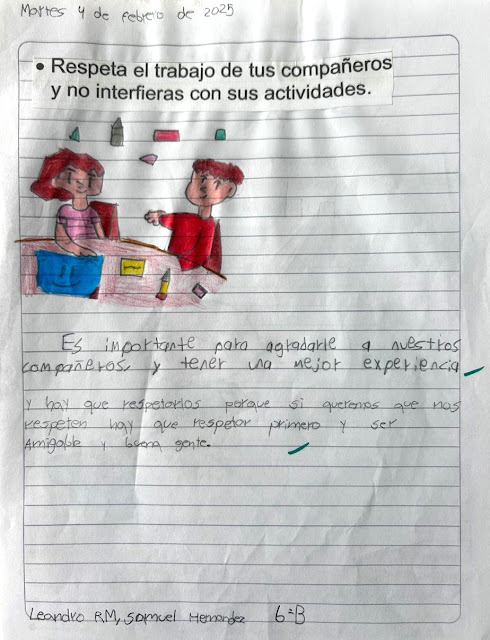 Martes 4 de febrero de 2025
• Respeta el trabajo de tus compañeros
y no interfieras con sus actividades.
Es importante para agradarle a nuestros
compañeros, y tener una mejor experiencia
y hay que respetarlos porque si queremos que nos
respeten hay que respetar primero y ser
Amigable y buena gente.
Leandro RM, Samuel Hernandez 6=B